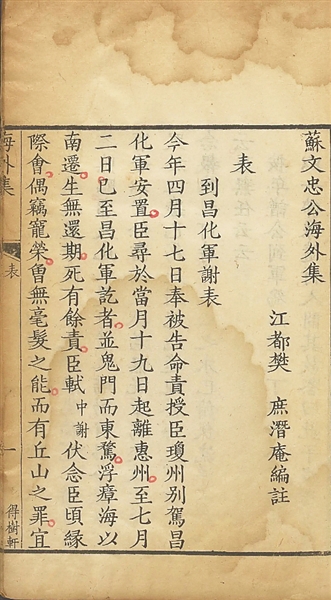 蘇文忠公海外集
江都樊 庶潛庵編註
表
到昌化軍謝表
今年四月十七日奉被告命責授臣瓊州别駕昌
化軍安置臣尋於當月十九日起離惠州至七月
二日已至昌化軍訖者並鬼門而東騖浮瘴海以
南遷生無還期死有餘責臣軾 中謝 伏念臣頃緣
際會偶竊寵榮曾無毫髮之能而有丘山之罪宜
海外集 表 一 得樹軒